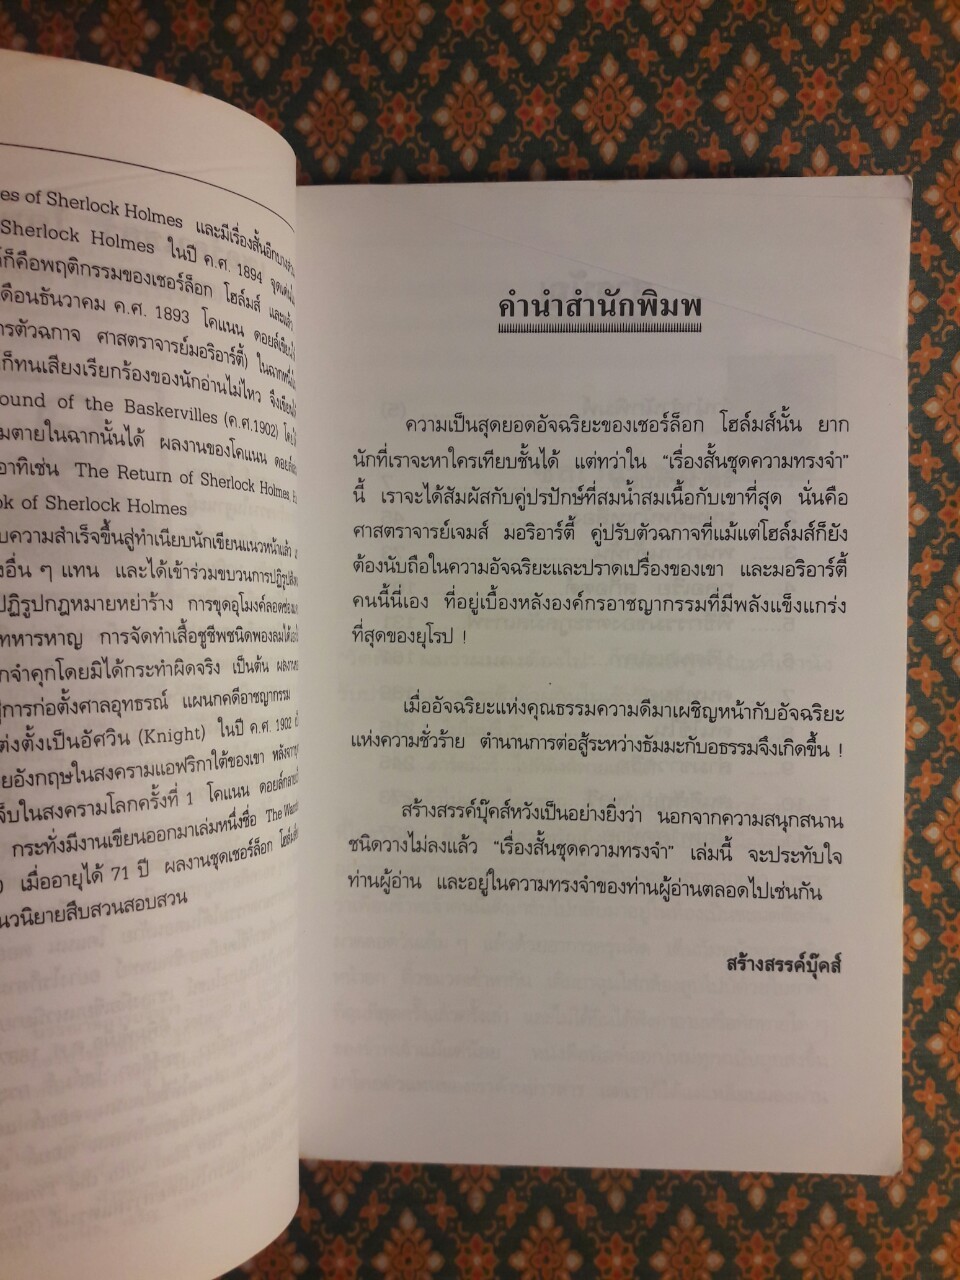 es of Sherlock Holmes และมีเรื่องสั้นอีกบางส่วน
Sherlock Holmes ในปี ค.ศ. 1894 จุดเด่น
ก็คือพฤติกรรมของเชอร์ล็อก โฮล์มส์ และแล้ว
ดือนธันวาคม ค.ศ. 1893 โคแนน ดอยล์เขียนให้
ารตัวฉกาจ ศาสตราจารย์มอริอาร์ตี้) ในฉากหนึ่ง
ก็ทนเสียงเรียกร้องของนักอ่านไม่ไหว จึงเขียน
ound of the Baskervilles (ค.ศ.1902) โดย
มตายในฉากนั้นได้ ผลงานของโคแนน ดอยล์
อาทิเช่น The Return of Sherlock Holmes,
ok of Sherlock Holmes
บความสำเร็จขึ้นสู่ทำเนียบนักเขียนแนวหน้าแล้ว
งอื่น ๆ แทน และได้เข้าร่วมขบวนการปฏิรูปสังคม
ปฏิรูปกฎหมายหย่าร้าง การขุดอุโมงค์ลอดช่อง
ทหารหาญ การจัดทำเสื้อชูชีพชนิดพองลมได้
กจำคุกโดยมิได้กระทำผิดจริง เป็นต้น ผลงาน
ู่การก่อตั้งศาลอุทธรณ์ แผนกคดีอาชญากรรม
ต่งตั้งเป็นอัศวิน (Knight) ในปี ค.ศ. 1902
ยอังกฤษในสงครามแอฟริกาใต้ของเขา หลังจาก
จ็บในสงครามโลกครั้งที่ 1 โคแนน ดอยล์กลาย
กระทั่งมีงานเขียนออกมาเล่มหนึ่งชื่อ The
0 เมื่ออายุได้ 71 ปี ผลงานชุดเชอร์ล็อก โฮล์มส์
นวนิยายสืบสวนสอบสวน
คำนำสำนักพิมพ์
ความเป็นสุดยอดอัจฉริยะของเชอร์ล็อก โฮล์มส์นั้น ยาก
นักที่เราจะหาใครเทียบชั้นได้ แต่ทว่าใน “เรื่องสั้นชุดความทรงจำ”
นี้ เราจะได้สัมผัสกับคู่ปรปักษ์ที่สมน้ำสมเนื้อกับเขาที่สุด นั่นคือ
ศาสตราจารย์เจมส์ มอริอาร์ตี้ คู่ปรับตัวฉกาจที่แม้แต่โฮล์มส์ก็ยัง
ต้องนับถือในความอัจฉริยะและปราดเปรื่องของเขา และมอริอาร์ตี้
คนนี้นี่เอง ที่อยู่เบื้องหลังองค์กรอาชญากรรมที่มีพลังแข็งแกร่ง
ที่สุดของยุโรป !
เมื่ออัจฉริยะแห่งคุณธรรมความดีมาเผชิญหน้ากับอัจฉริยะ
แห่งความชั่วร้าย ตำนานการต่อสู้ระหว่างธัมมะกับอธรรมจึงเกิดขึ้น !
สร้างสรรค์บุ๊คส์หวังเป็นอย่างยิ่งว่า นอกจากความสนุกสนาน
ชนิดวางไม่ลงแล้ว “เรื่องสั้นชุดความทรงจำ” เล่มนี้ จะประทับใจ
ท่านผู้อ่าน และอยู่ในความทรงจำของท่านผู้อ่านตลอดไปเช่นกัน
สร้างสรรค์บุ๊คส์